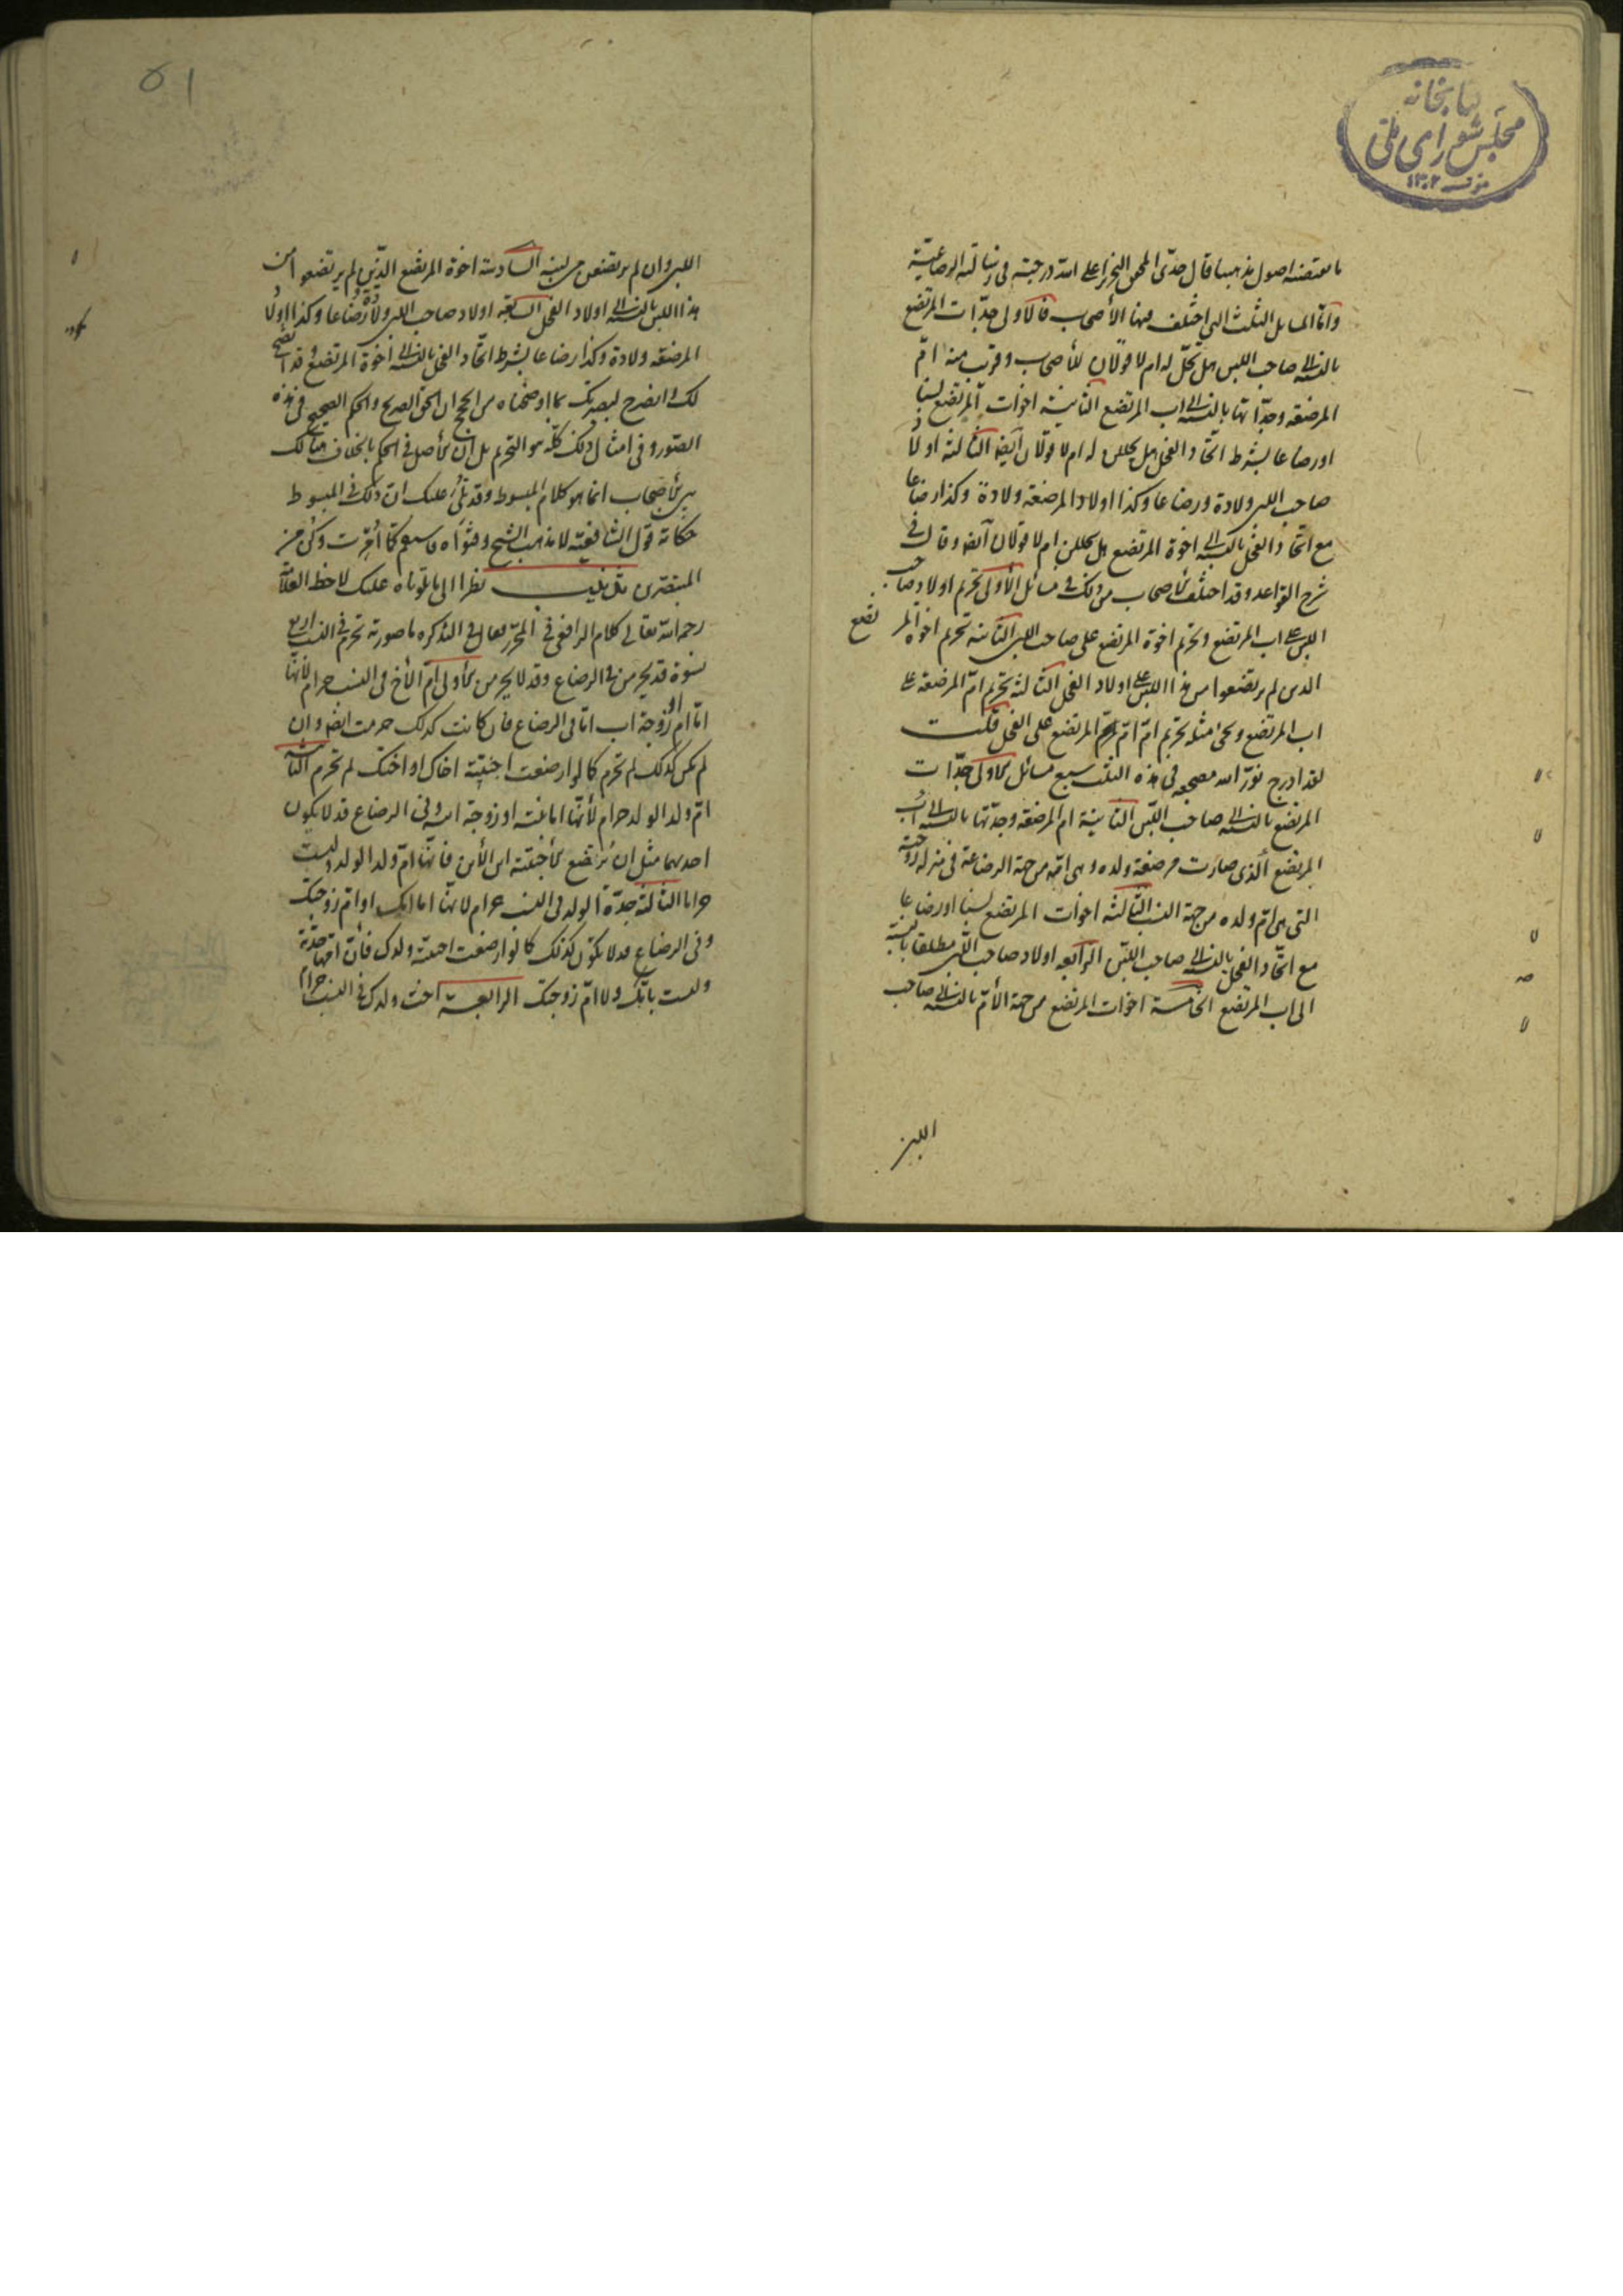 كتابخانه
مجلس شورای ملی
١٣٠٢
ما يقتضيه اصول مذهبنا قال جدّى المحقق النحرير اعلى الله درجته فى رسالته الرضاعيّة
وامّا المسايل الثلث التى اختلف فيها الأصحاب فالاولى جدّات المرتضع
بالنسبة الى صاحب اللبن هل تحلّ له ام لا قولان للأصحاب وقريب منه امّ
المرضعة وجدّاتها بالنسبة الى اب المرتضع الثانية اخوات المرتضع نسبا
او رضاعا بشرط اتّحاد الفحل هل يحللن له ام لا قولان ايضا الثالثة اولاد
صاحب اللبن ولادة ورضاعا وكذا اولاد المرضعة ولادة وكذا رضاعا
مع اتّحاد الفحل بالنسبة الى اخوة المرتضع هل يحللن ام لا قولان ايضا وقال فى
شرح القواعد وقد اختلف الأصحاب من ذلك فى مسائل الأولى تحريم اولاد صاحب
اللبن على اب المرتضع وتحريم اخوة المرتضع على صاحب اللبن الثانية تحريم اخوة المرتضع
الذين لم يرتضعوا من هذا اللبن على اولاد الفحل الثالثة تحريم امّ المرضعة على
اب المرتضع ويجئ مثله تحريم امّ امّ المرتضع على الفحل قلت
لقد ادرج نوّر الله مضجعه فى هذه الثلث سبع مسائل الأولى جدّات
المرتضع بالنسبة الى صاحب اللبن الثانية ام المرضعة وجدّتها بالنسبة الى اب
المرتضع الّذى صارت مرضعة ولده وهى امّه من جهة الرضاعة فى منزلة زوجته
التى هى امّ ولده من جهة النسب الثالثة اخوات المرتضع نسبا او رضاعا
مع اتّحاد الفحل بالنسبة الى صاحب اللبن الرابعة اولاد صاحب اللبن مطلقا بالنسبة
الى اب المرتضع الخامسة اخوات المرتضع من جهة الأمّ بالنسبة الى صاحب
اللبن
٥١
اللبن وان لم يرتضعن من لبنه السادسة اخوة المرتضع الّذين لم يرتضعوا من
هذا اللبن بالنسبة الى اولاد الفحل السابعة اولاد صاحب اللبن ولادة ورضاعا وكذا اولاد
المرضعة ولادة وكذا رضاعا بشرط اتّحاد الفحل بالنسبة الى اخوة المرتضع وقد اتضح
لك وانصرح لبصيرتك بما اوضحناه من الحجج ان الحق الصريح والحكم الصحيح فى هذه
الصور وفى امثال ذلك كلّه هو التحريم بل ان الأصل فى الحكم بالخلاف هنالك
بين الأصحاب انما هو كلام المبسوط وقد تلى عليك ان ذلك فى المبسوط
حكاية قول الشافعيّة لا مذهب الشيخ وفتواه فاستقم كما اُمرت وكن من
المتبصّرين نظرا الى ما تلوناه عليك لاحظ العلّامة
رحمه الله تعالى كلام الرافعى فى المحرّر فقال فى التذكره ما صورته تحرم فى النسب اربع
نسوة قد يحرمن فى الرضاع وقد لا يحرمن الأولى امّ الأخ فى النسب حرام لأنّها
امّا امّ او زوجة اب امّا فى الرضاع فان كانت كذلك حرمت ايضا وان
لم يكن كذلك لم تحرم كما لو ارضعت اجنبيّة اخاك او اختك لم تحرم الثانية
امّ ولد الولد حرام لأنّها اما بنته او زوجة ابنه وفى الرضاع قد لا يكون
احديهما مثل ان ترضع الأجنبيّة ابن الأبن فانّها امّ ولد الولد وليست
حراما الثالثة جدّة الولد فى النسب حرام لانّها اما امّك او امّ زوجتك
وفى الرضاع قد لا يكون كذلك كما لو ارضعت اجنبيّة ولدك فانّ امّها جدّته
وليست بامّك ولا امّ زوجتك الرابعة اخت ولدك فى النسب حرام